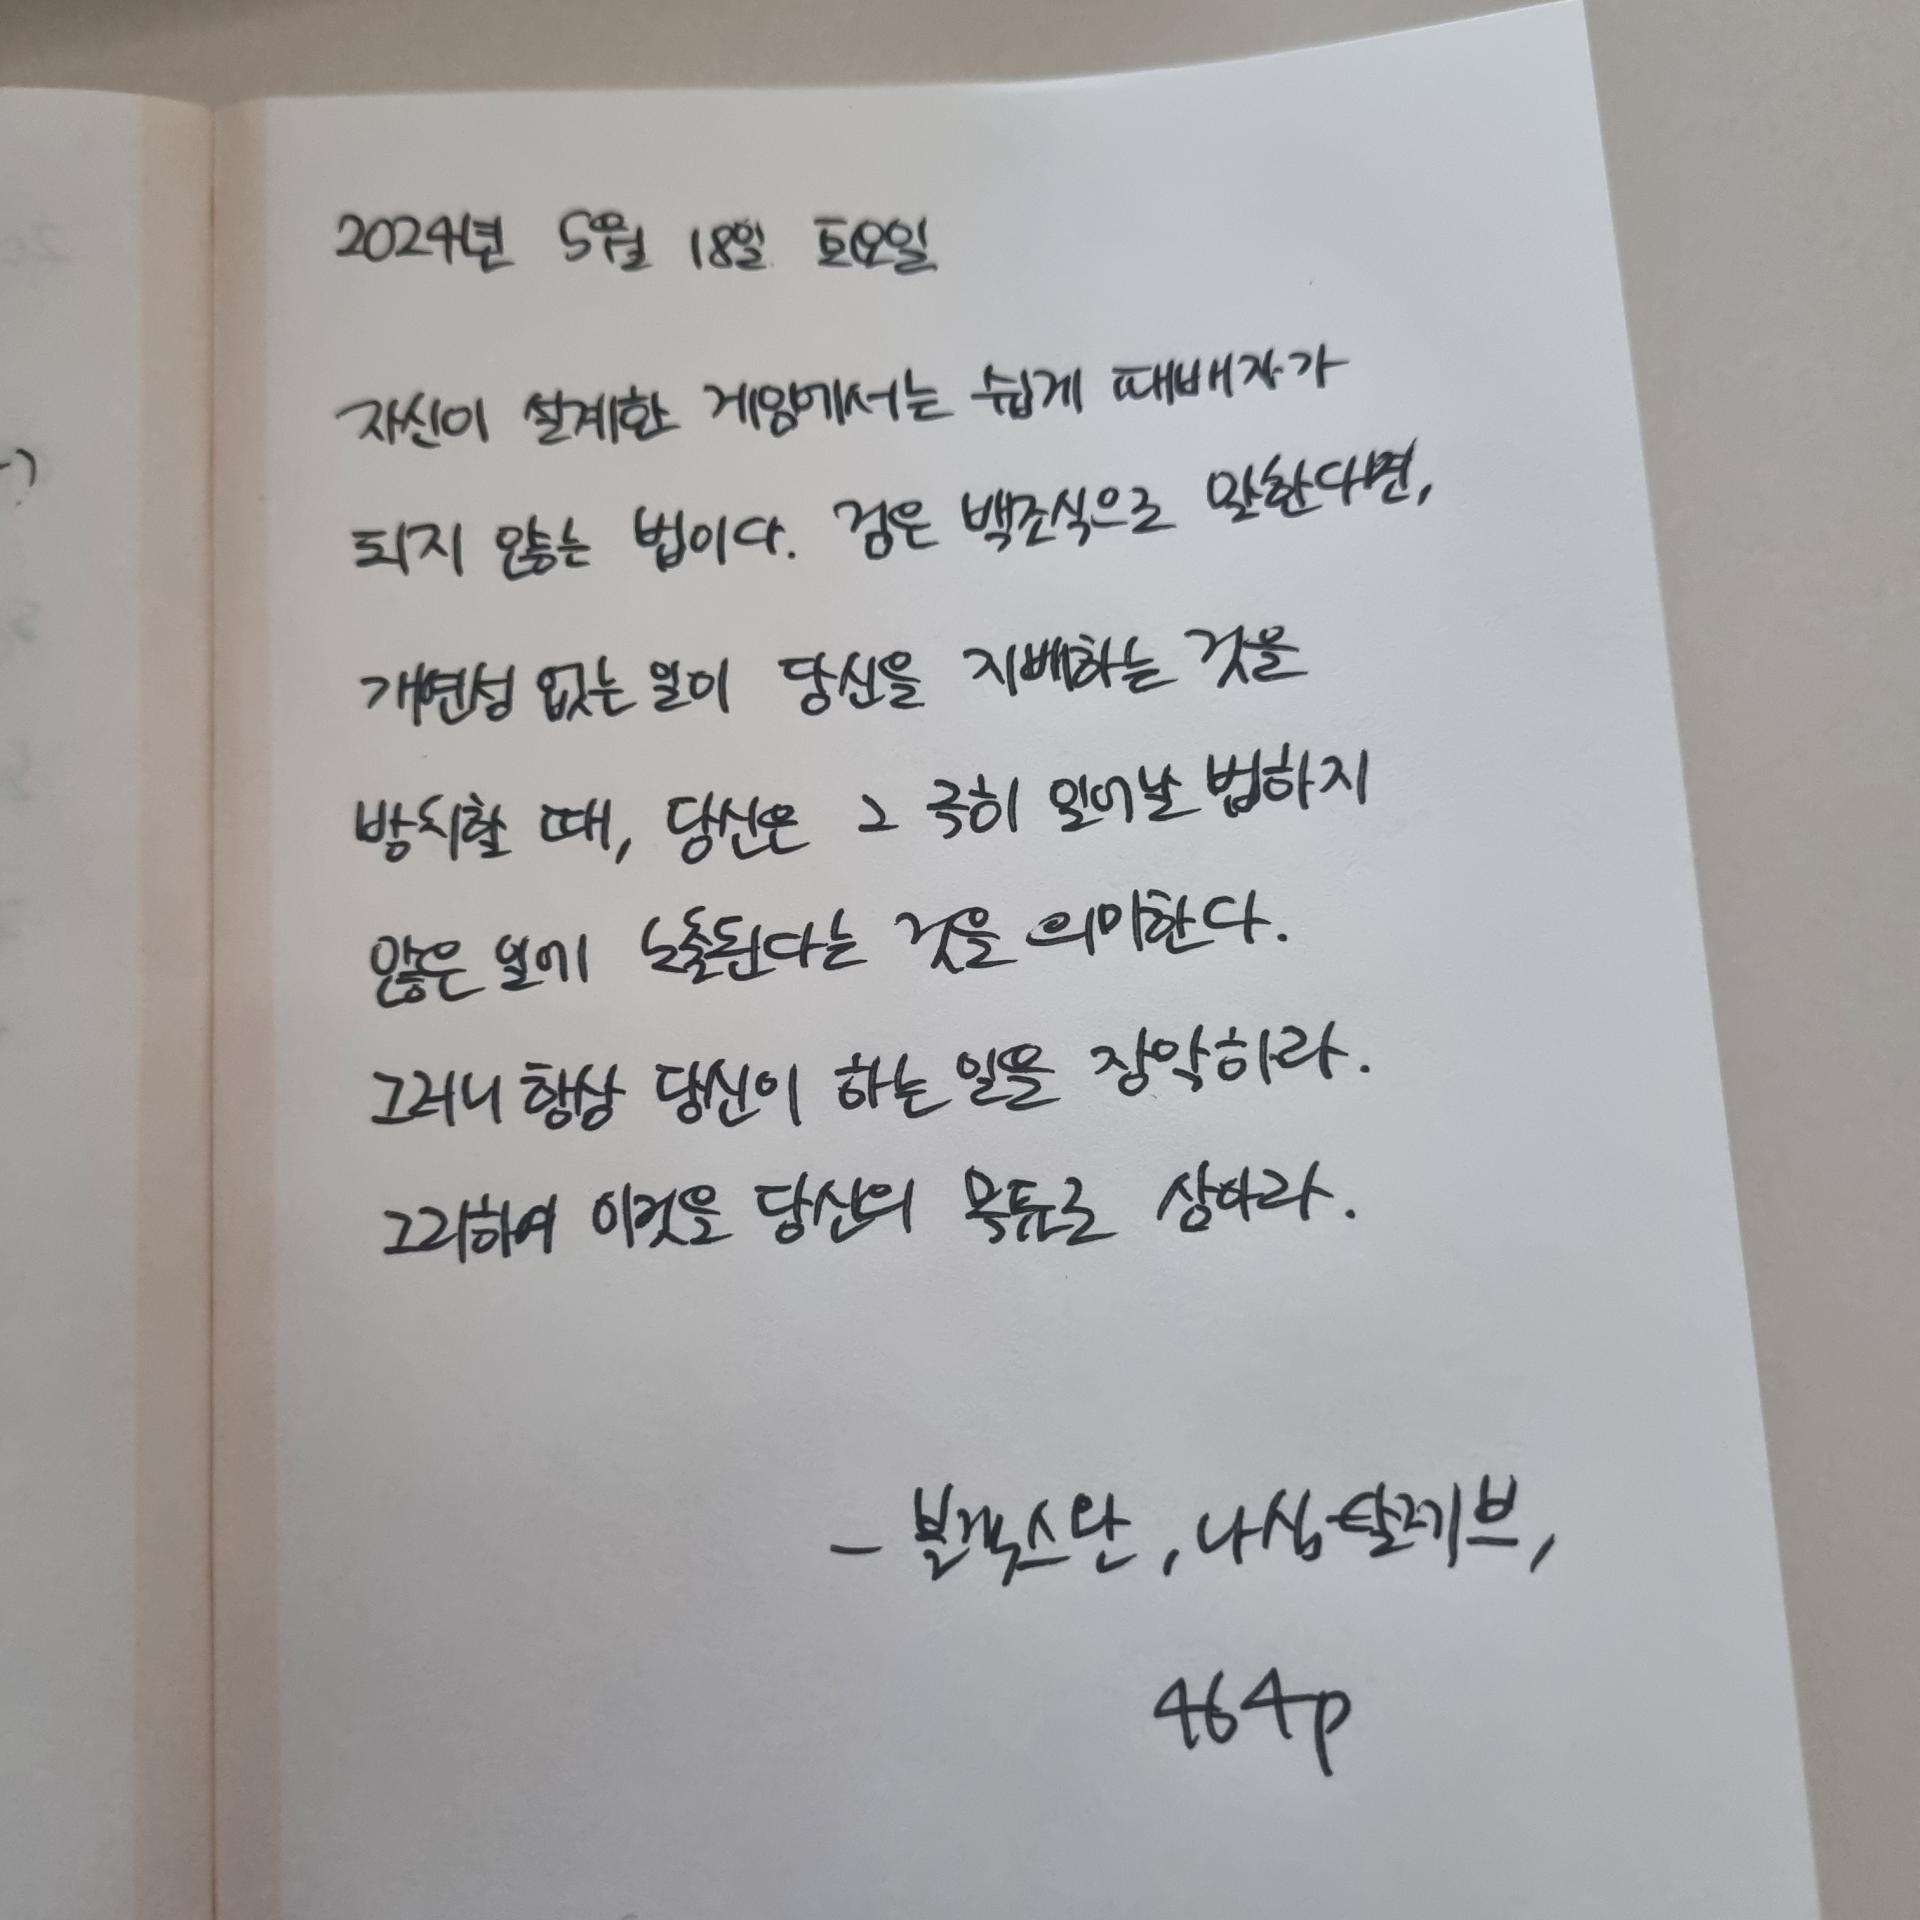 2024년 5월 18일 토요일
자신이 설계한 게임에서는 쉽게 패배자가
되지 않는 법이다. 검은 백조식으로 말한다면,
개연성 없는 일이 당신을 지배하는 것을
방치할 때, 당신은 그 극히 일어날 법하지
않은 일에 노출된다는 것을 의미한다.
그러니 항상 당신이 하는 일을 장악하라.
그리하여 이것을 당신의 목표로 삼아라.
- 블랙스완, 나심 탈레브,
464p